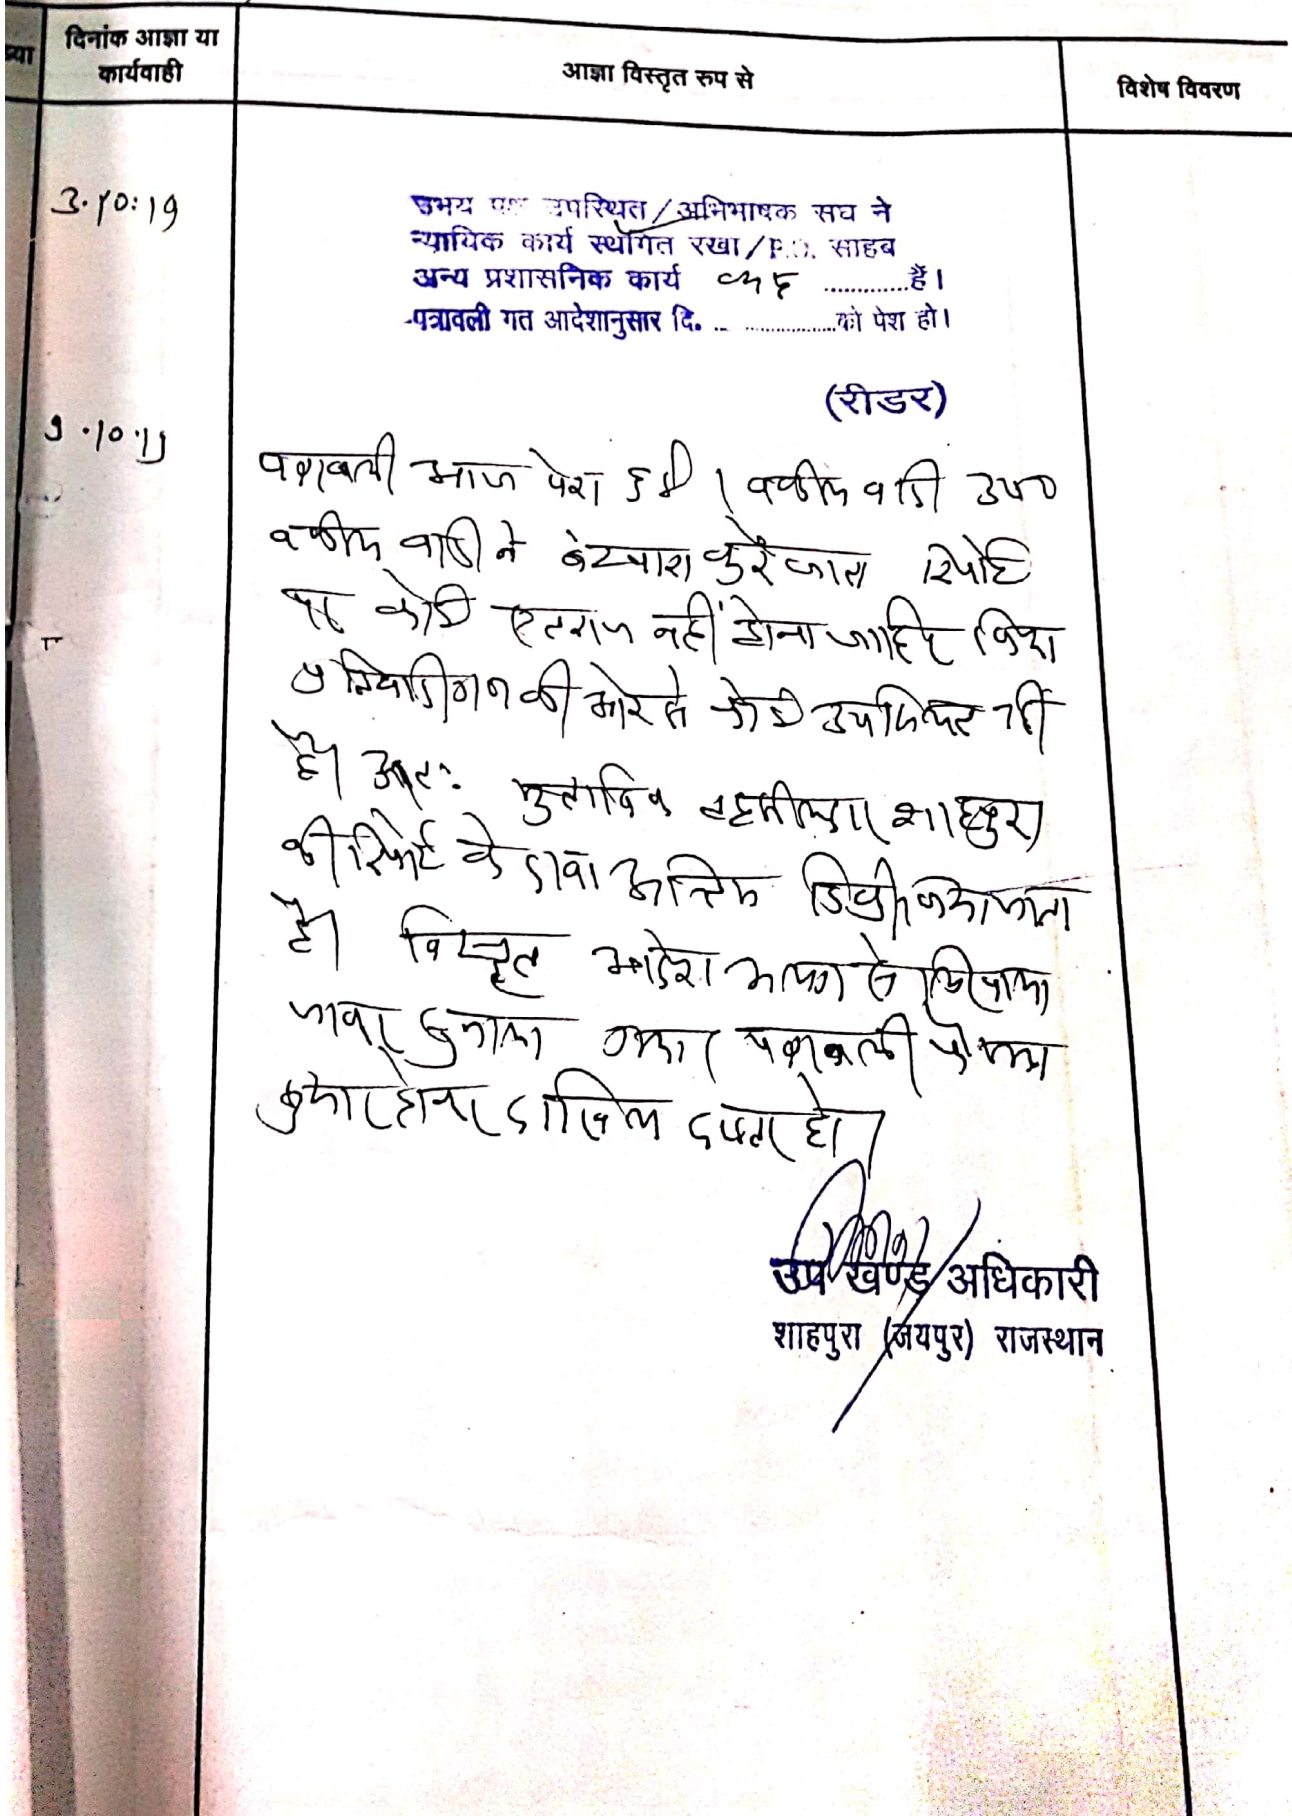 दिनांक आज्ञा या
कार्यवाही
आज्ञा विस्तृत रुप से
विशेष विवरण
3.10:19
उभय पक्ष उपस्थित/अभिभाषक संघ ने
न्यायिक कार्य स्थगित रखा/P.O. साहब
अन्य प्रशासनिक कार्य .............हैं।
पत्रावली गत आदेशानुसार दि. .. .................को पेश हो।
(रीडर)
9.10.19
पत्रावली आज पेश हुई। वकील वादी उप०
वकील वादी ने बंटवारा कुर्रेजात रिपोर्ट
पर कोई एतराज नहीं होना जाहिर किया
प्रतिवादीगण की ओर से कोई उपस्थित नहीं
है। अतः मुताबिक तहसीलदार शाहपुरा
की रिपोर्ट के दावा अन्तिम डिक्री किया जाता
है। विस्तृत आदेश अलग से लिखाया
जाकर सुनाया गया। पत्रावली फैसल
शुमार होकर दाखिल दफ्तर हो।
उप खण्ड अधिकारी
शाहपुरा (जयपुर) राजस्थान